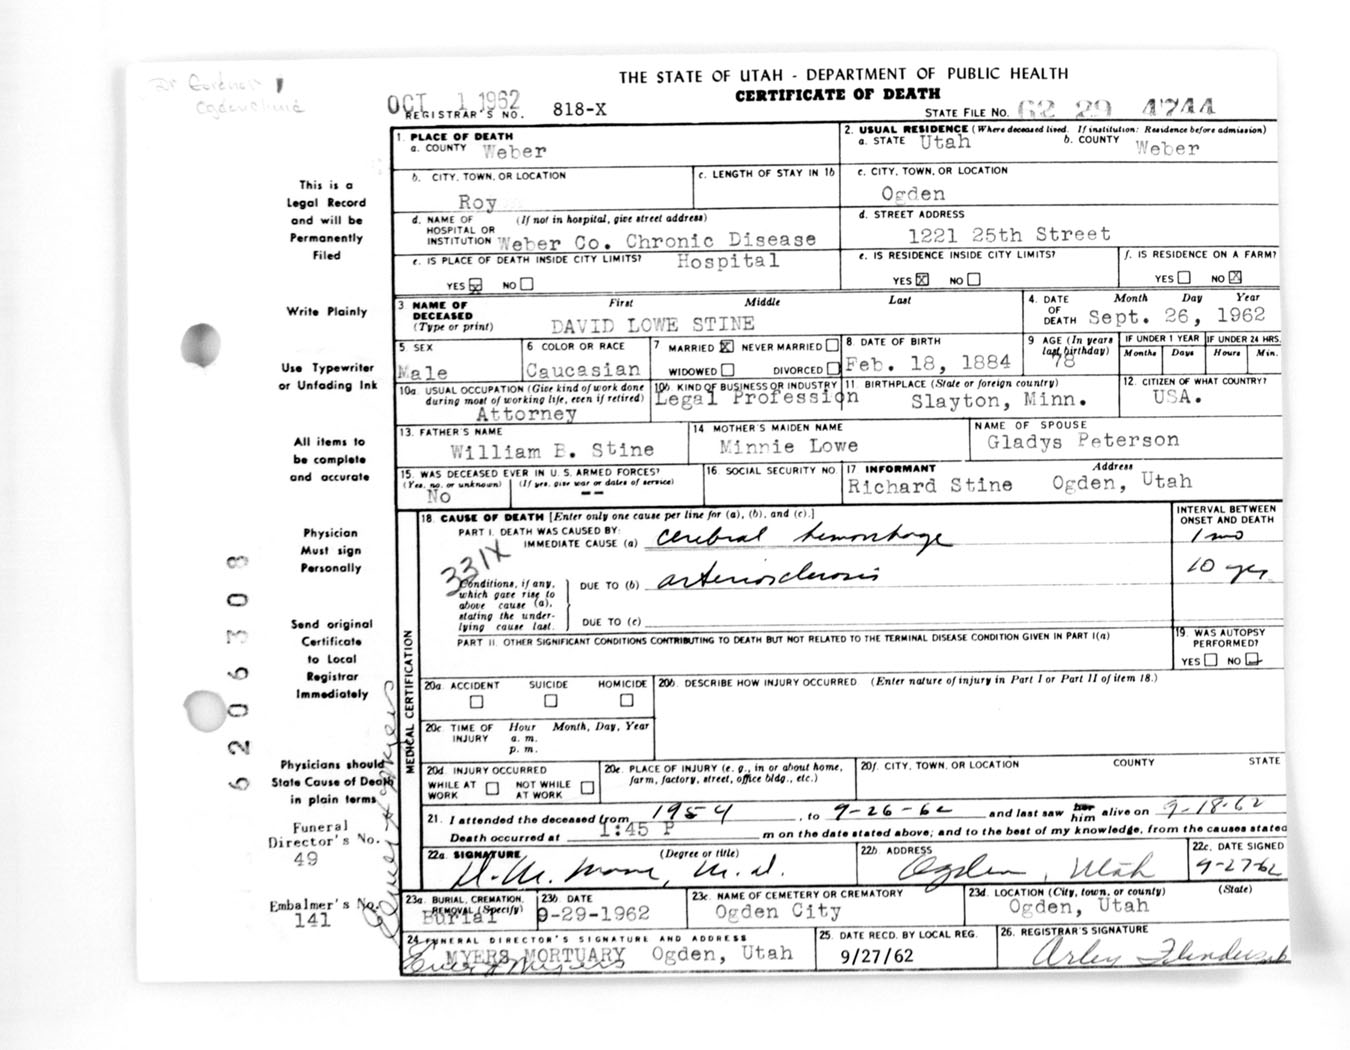 THE STATE OF UTAH - DEPARTMENT OF PUBLIC HEALTH
CERTIFICATE OF DEATH
OCT 1 1962
REGISTRAR'S NO. 818-X
STATE FILE NO. 62 29 4744
1. PLACE OF DEATH
a. COUNTY Weber
2. USUAL RESIDENCE (Where deceased lived. If institution: Residence before admission)
a. STATE Utah b. COUNTY Weber
b. CITY, TOWN, OR LOCATION
Roy
c. LENGTH OF STAY IN 1b
c. CITY, TOWN, OR LOCATION
Ogden
d. NAME OF HOSPITAL OR INSTITUTION (If not in hospital, give street address)
Weber Co. Chronic Disease
Hospital
d. STREET ADDRESS
1221 25th Street
e. IS PLACE OF DEATH INSIDE CITY LIMITS?
YES NO
e. IS RESIDENCE INSIDE CITY LIMITS?
YES NO
f. IS RESIDENCE ON A FARM?
YES NO
3 NAME OF DECEASED (Type or print) First Middle Last
DAVID LOWE STINE
4. DATE OF DEATH Month Day Year
Sept. 26, 1962
5. SEX
Male
6 COLOR OR RACE
Caucasian
7 MARRIED NEVER MARRIED
WIDOWED DIVORCED
8. DATE OF BIRTH
Feb. 18, 1884
9 AGE (In years last birthday)
78
IF UNDER 1 YEAR
Months Days
IF UNDER 24 HRS.
Hours Min.
10a. USUAL OCCUPATION (Give kind of work done during most of working life, even if retired)
Attorney
10b. KIND OF BUSINESS OR INDUSTRY
Legal Profession
11. BIRTHPLACE (State or foreign country)
Slayton, Minn.
12. CITIZEN OF WHAT COUNTRY?
USA.
13. FATHER'S NAME
William B. Stine
14 MOTHER'S MAIDEN NAME
Minnie Lowe
NAME OF SPOUSE
Gladys Peterson
15. WAS DECEASED EVER IN U.S. ARMED FORCES?
(Yes, no, or unknown) (If yes, give war or dates of service)
No --
16. SOCIAL SECURITY NO.
17 INFORMANT Address
Richard Stine Ogden, Utah
MEDICAL CERTIFICATION
18. CAUSE OF DEATH [Enter only one cause per line for (a), (b), and (c).]
INTERVAL BETWEEN ONSET AND DEATH
PART I. DEATH WAS CAUSED BY:
IMMEDIATE CAUSE (a) cerebral hemorrhage 1 mo
331X
Conditions, if any, which gave rise to above cause (a), stating the underlying cause last.
DUE TO (b) arteriosclerosis 10 yrs
DUE TO (c)
PART II. OTHER SIGNIFICANT CONDITIONS CONTRIBUTING TO DEATH BUT NOT RELATED TO THE TERMINAL DISEASE CONDITION GIVEN IN PART I(a)
19. WAS AUTOPSY PERFORMED?
YES NO
20a. ACCIDENT SUICIDE HOMICIDE
20b. DESCRIBE HOW INJURY OCCURRED (Enter nature of injury in Part I or Part II of item 18.)
20c. TIME OF INJURY Hour Month, Day, Year
a. m.
p. m.
20d. INJURY OCCURRED
WHILE AT WORK NOT WHILE AT WORK
20e. PLACE OF INJURY (e. g., in or about home, farm, factory, street, office bldg., etc.)
20f. CITY, TOWN, OR LOCATION COUNTY STATE
21. I attended the deceased from 1954, to 9-26-62 and last saw her him alive on 9-18-62
Death occurred at 1:45 P m on the date stated above; and to the best of my knowledge, from the causes stated
22a. SIGNATURE (Degree or title)
22b. ADDRESS
Ogden, Utah
22c. DATE SIGNED
9-27-62
23a. BURIAL, CREMATION, REMOVAL (Specify)
Burial
23b. DATE
9-29-1962
23c. NAME OF CEMETERY OR CREMATORY
Ogden City
23d. LOCATION (City, town, or county) (State)
Ogden, Utah
24 FUNERAL DIRECTOR'S SIGNATURE AND ADDRESS
MYERS MORTUARY Ogden, Utah
25. DATE RECD. BY LOCAL REG.
9/27/62
26. REGISTRAR'S SIGNATURE
This is a
Legal Record
and will be
Permanently
Filed
Write Plainly
Use Typewriter
or Unfading Ink
All items to
be complete
and accurate
Physician
Must sign
Personally
Send original
Certificate
to Local
Registrar
Immediately
Physicians should
State Cause of Death
in plain terms
Funeral
Director's No.
49
Embalmer's No.
141
6206308